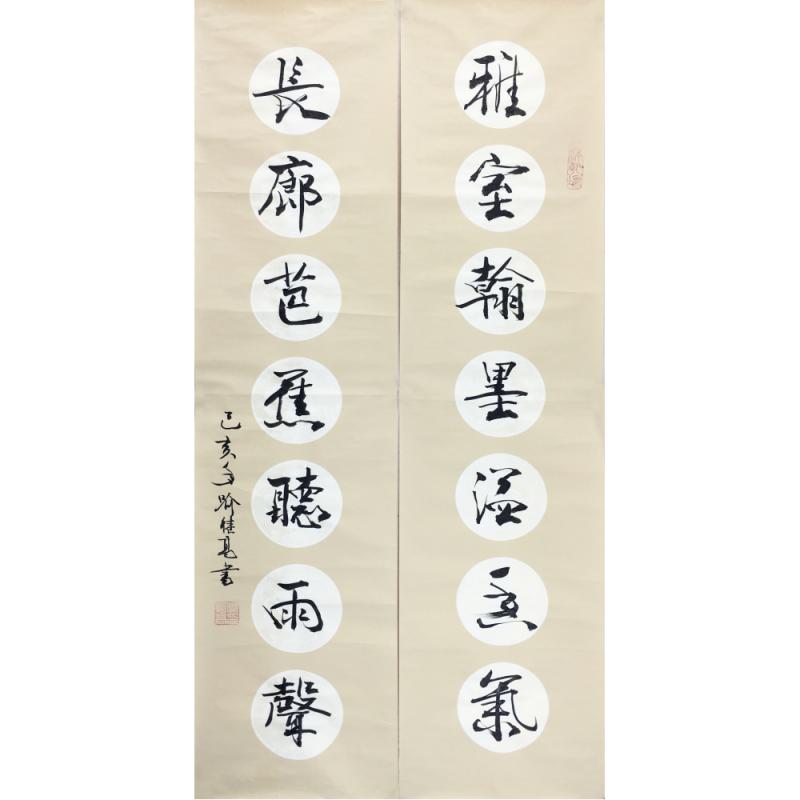 雅室翰墨溢氣
長廊芭蕉聽雨聲
己亥年書